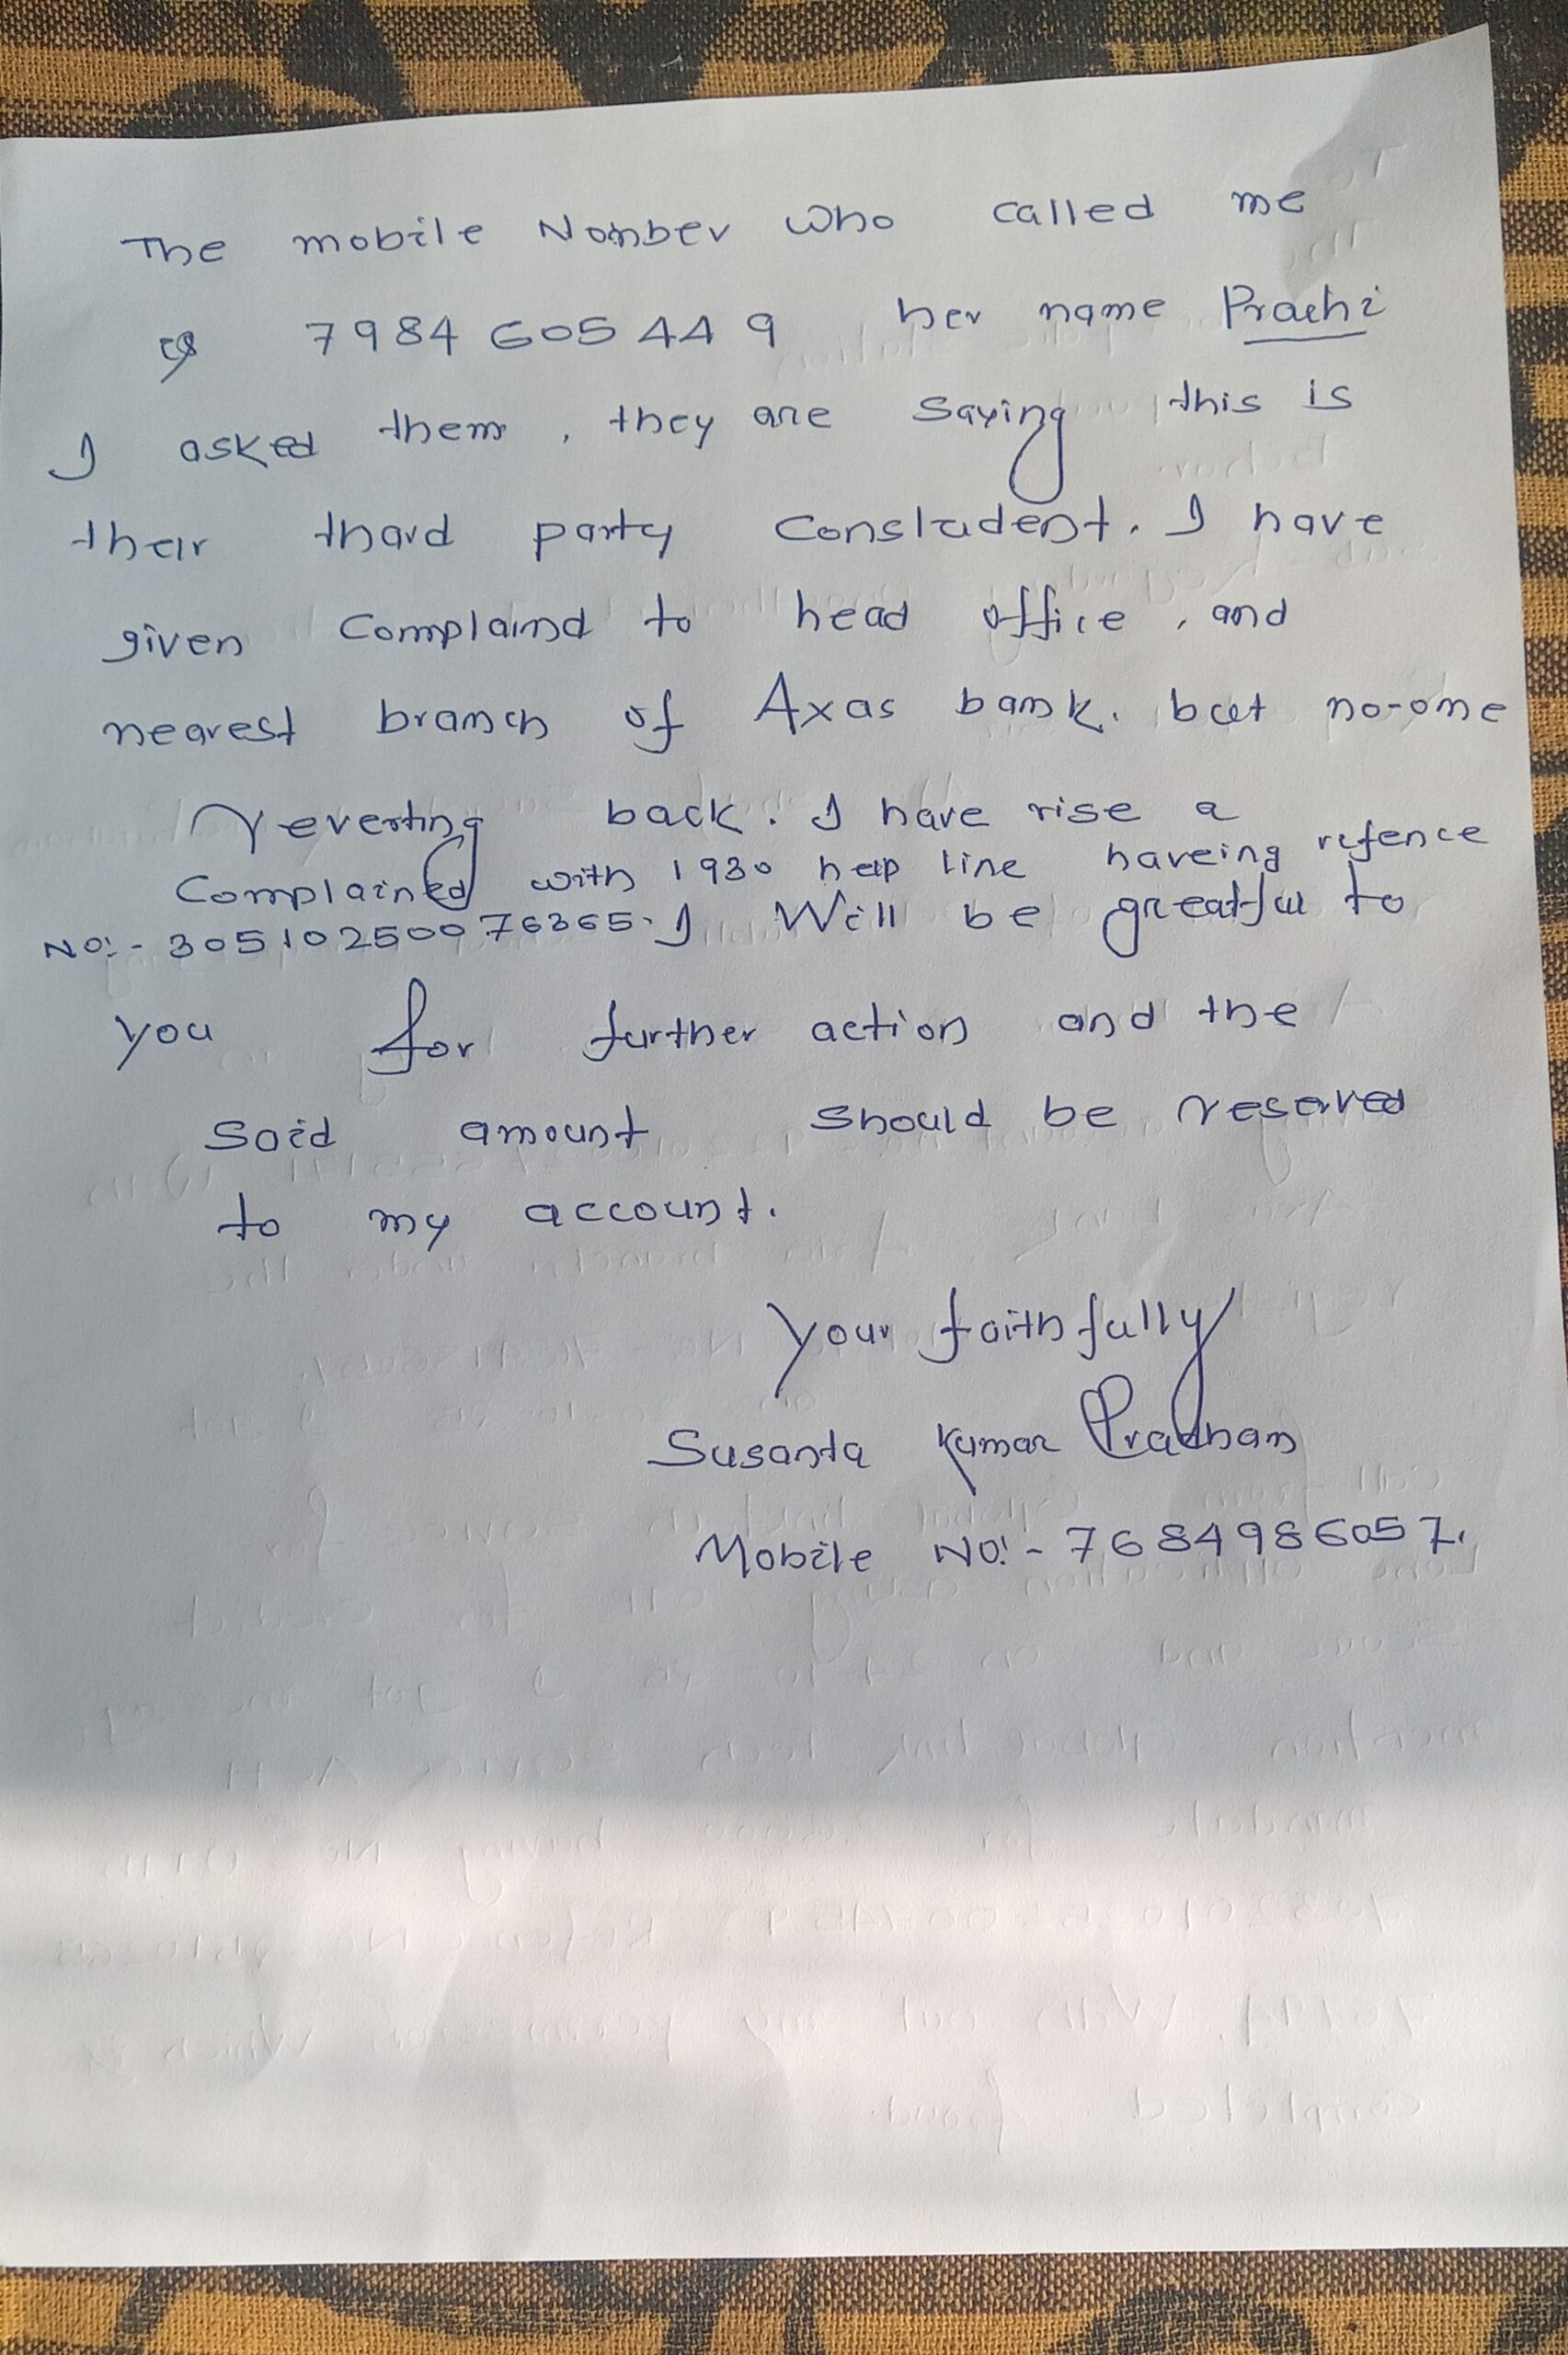 The mobile Nomber who called me
is 7984605449 her name Prachi
I asked them, they are saying this is
their thard party Consludent. I have
given Complaind to head office, and
nearest branch of Axas bank. but no-one
reverting back. I have rise a
Complained with 1930 help line haveing refence
NO:- 30510250076365. I Will be greatful to
you for further action and the
said amount should be reserved
to my account.
your faithfully
Susanta Kumar Pradhan
Mobile NO:- 7684986057.